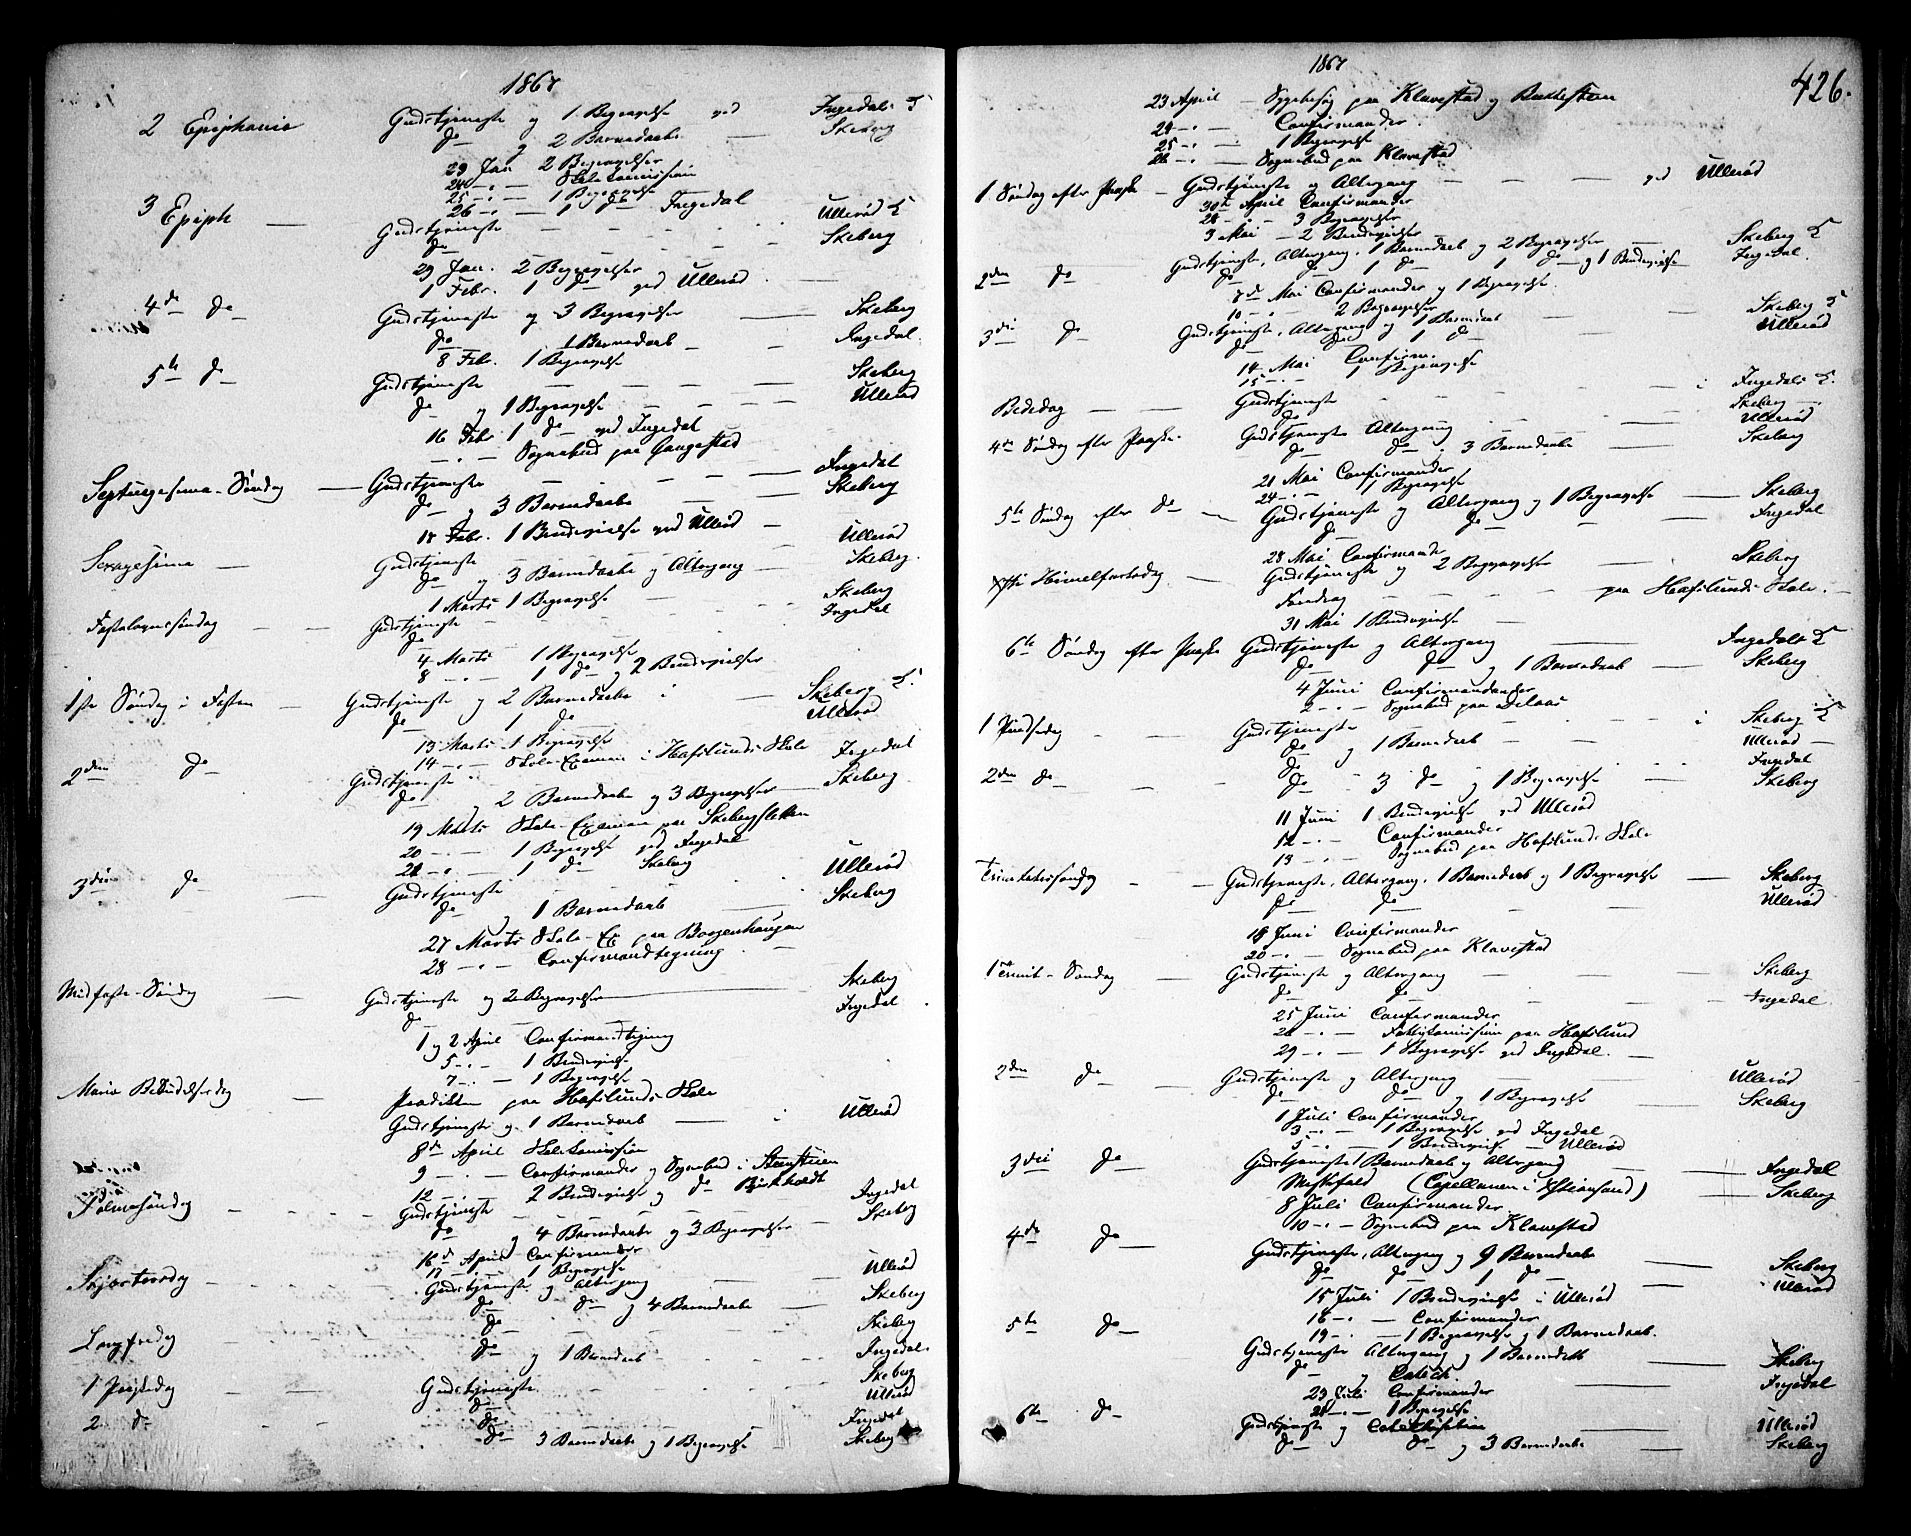 1867
2 Epiphania Gudstjeneste og 1 Begravelse ved Ingedal K
do og 2 Barnedaab Skeberg
23 Jan 2 Begravelser
24 -"- Skolekomission
25 -"- 1 Begravelse
26 -"- 1 do Ingedal
3 Epiph — Gudstjeneste Ullerød K
do Skeberg
29 Jan. 2 Begravelser
1 Febr. 1 do ved Ullerød
4de do Gudstjeneste og 3 Begravelser Skeberg
do 1 Barnedaab Ingedal
8 Febr. 1 Begravelse
5te do Gudstjeneste Skeberg
do og 1 Begravelse Ullerød
16 Febr 1 do ved Ingedal
-"- Sognebud paa Gangestad
Septuagesima-Søndag — Gudstjeneste Ingedal
do og 3 Barnedaab Skeberg
18 Febr. 1 Brudevielse ved Ullerød
Sexagesima — Gudstjeneste Ullerød
do og 3 Barnedaab og Altergang Skeberg
1 Marts 1 Begravelse
Fastelavnssøndag Gudstjeneste Skeberg
do Ingedal
4 Marts 1 Begravelse
8 -"- 1 do og 2 Brudevielser
1ste Søndag i Fasten — Gudstjeneste og 2 Barnedaab i Skeberg K.
do 1 do Ullerød
13 Marts 1 Begravelse
14 -"- Skole-Examen i Hafslunds Skole
2den do Gudstjeneste Ingedal
do og 2 Barnedaab og 3 Begravelser Skeberg
19 Marts Skole-Examen paa Skebergsletten
20 -"- 1 Begravelse ved Ingedal
22 -"- 1 do Skeberg
3die do Gudstjeneste Ullerød
do og 1 Barnedaab Skeberg
27 Marts Skole-Ex paa Borgenhaugen
28 -"- Confirmandtegning
Midfaste-Søndag — Gudstjeneste og 2 Begravelser Skeberg
do Ingedal
1 og 2 April Confirmandtegning
5 -"- 1 Brudevielse
7 -"- 1 Begravelse
Maria Bebudelsesdag — Prædiken paa Hafslunds Skole
Gudstjeneste og 1 Barnedaab i Ullerød
8de April Skolekomission
9 -"- Confirmander og Sognebud i Steenstuen
12 -"- 2 Brudevielser og do Birkholdt
Palmesøndag Gudstjeneste Ingedal
do og 4 Barnedaab og 3 Begravelser Skeberg
16de April Confirmander
17 -"- 1 Begravelse
Skjærtorsdag Gudstjeneste og Altergang Ullerød
do do og 4 Barnedaab Skeberg
Langfredag do Skeberg
do og 1 Barnedaab Ingedal
1 Paaskedag Gudstjeneste Skeberg
do Ullerød
2 do do Ingedal
do 3 Barnedaab og 1 Begravelse Skeberg
1867
426.
23 April — Sygebesøg paa Klavestad og
24 -"- Confirmander
25 -"- 1 Begravelse
26 -"- Sognebud paa Klavestad
1 Søndag efter Paaske — Gudstjeneste og Altergang ved Ullerød
30te April Confirmander
28 -"- 3 Begravelser
3 Mai 2 Brudevielser
2den do Gudstjeneste, Altergang, 1 Barnedaab og 2 Begravelser Skeberg K
do do 1 do 1 do og 1 Brudevielse Ingedal
7de Mai Confirmander og 1 Begravelse
10 -"- 2 Begravelser
3die do Gudstjeneste, Altergang og 1 Barnedaab Skeberg K
do do 1 do Ullerød
14 Mai Confirm.
15 -"- 1 Begravelse
Bededag — Gudstjeneste i Ingedals K.
do Skeberg
4de Søndag efter Paaske. Gudstjeneste Altergang Ullerød
do do 3 Barnedaab Skeberg
21 Mai Confirmander
24 -"- 1 Begravelse
5te Søndag efter do — Gudstjeneste og Altergang og 1 Begravelse Skeberg
do do Ingedal
28 Mai Confirmander
Xsti Himelfartsdag Gudstjeneste og 2 Begravelser Skeberg
Foredrag paa Hafslunds Skole.
31 Mai 1 Brudevielse
6te Søndag efter Paaske Gudstjeneste og Altergang Ingedals K
do do og 1 Barnedaab Skeberg
4 Juni Confirmander
2 -"- Sognebud paa
1 Pindsedag Gudstjeneste i Skeberg K
do og 1 Barnedaab Ullerød
2den do do Ingedal
do 3 do og 1 Begravelse Skeberg
11 Juni 1 Brudevielse ved Ullerød
12 -"- Confirmander
13 -"- Sognebud paa Hafslunds Skole
Trinitatissøndag — Gudstjeneste, Altergang, 1 Barnedaab og 1 Begravelse Skeberg
do do Ullerød
18 Juni Confirmander
20 -"- Sognebud paa Klavestad
1 Trinit-Søndag Gudstjeneste og Altergang Skeberg
do do Ingedal
25 Juni Confirmander
26 -"- Fattigkomission paa Hafslund
29 -"- 1 Begravelse ved Ingedal.
2den do Gudstjeneste og Altergang Ullerød
do do og 1 Begravelse Skeberg
1 Juli Confirmander
3 -"- 1 Begravelse ved Ingedal
5 -"- 1 Brudevielse — Ullerød
3die do Gudstjeneste 1 Barnedaab og Altergang Ingedal
Messefald (Capellanen i Xstiansand) Skeberg
8 Juli Confirmander
10 -"- Sognebud paa Klavestad
4de do Gudstjeneste, Altergang og 9 Barnedaab Skeberg
do do 1 do Ullerød
15 Juli 1 Brudevielse i Ullerød
16 -"- Confirmander
19 -"- 1 Begravelse og 1 Barnedaab.
5te do Gudstjeneste Altergang og 1 Barnedaab Skeberg
do og Catech. Ingedal
23 Juli Confirmander
24 -"- 1 Begravelse
6te do Gudstjeneste og Catechisation Ullerød
do do og 3 Barnedaab Skeberg